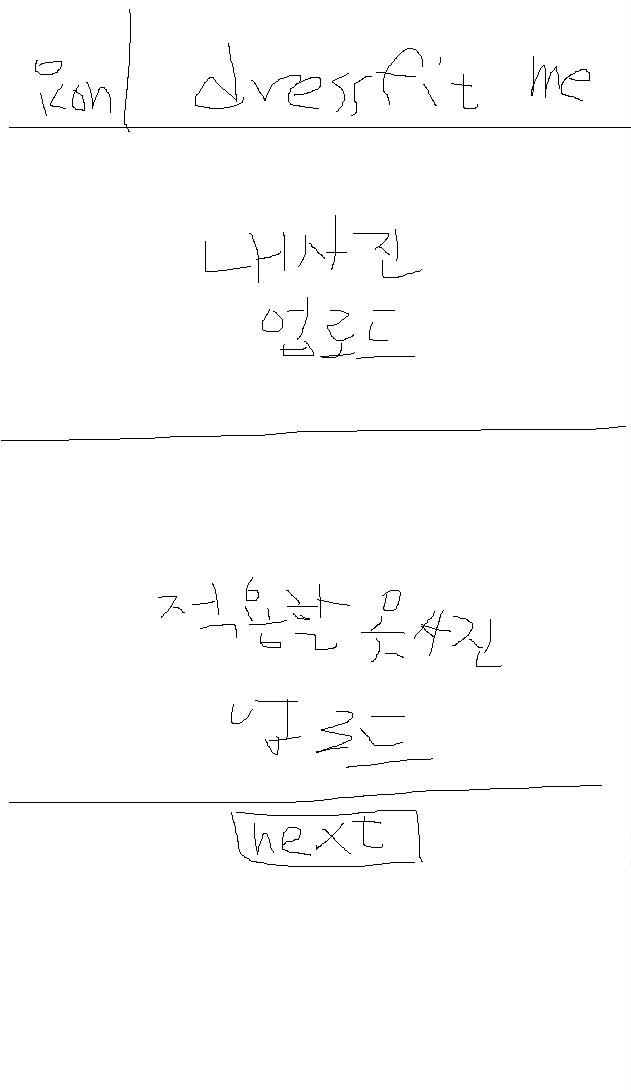 icon dressfit me
내사진
업로드
적용할 옷사진
업로드
next